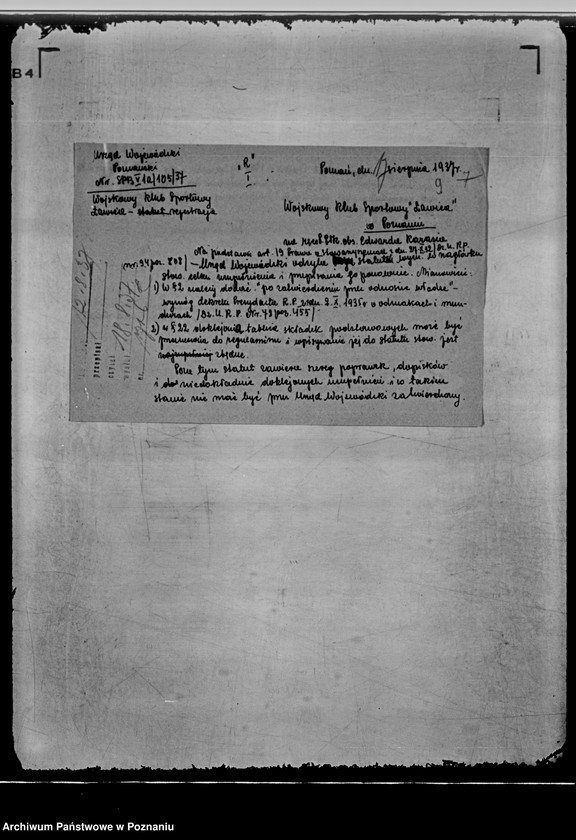 B4
Urząd Wojewódzki
Poznański
Nr. SPB V 1a/105/37
"R"
I
Poznań, dn. sierpnia 1937r.
9
Wojskowy Klub Sportowy
Ławica – statut rejestracja
Wojskowy Klub Sportowy "Ławica"
w Poznaniu
na ręce Edwarda
Na podstawie art. 19 Prawa o stowarzyszeniach z dn. Dz. U. R.P.
nr. 94 poz. 808/ – Urząd Wojewódzki statut wym. w nagłówku
stow. celem uzupełnienia i przepisania go ponownie. Mianowicie:
1) W § 2 należy dodać "po zatwierdzeniu przez odnośne władze" –
wymóg dekretu Prezydenta R.P. z dn. 1935r o odznakach i mun-
durach /Dz. U. R. P. Nr. 43 poz. 455/.
2) w § 22 doklejona tabela składek podstawowych może być
przeniesiona do regulaminu i wpisywanie jej do statutu stow. jest
zbędne.
Poza tym statut zawiera szereg poprawek, dopisków
i niedokładnie doklejonych uzupełnień i w takim
stanie nie może być przez Urząd Wojewódzki zatwierdzony.
Archiwum Państwowe w Poznaniu